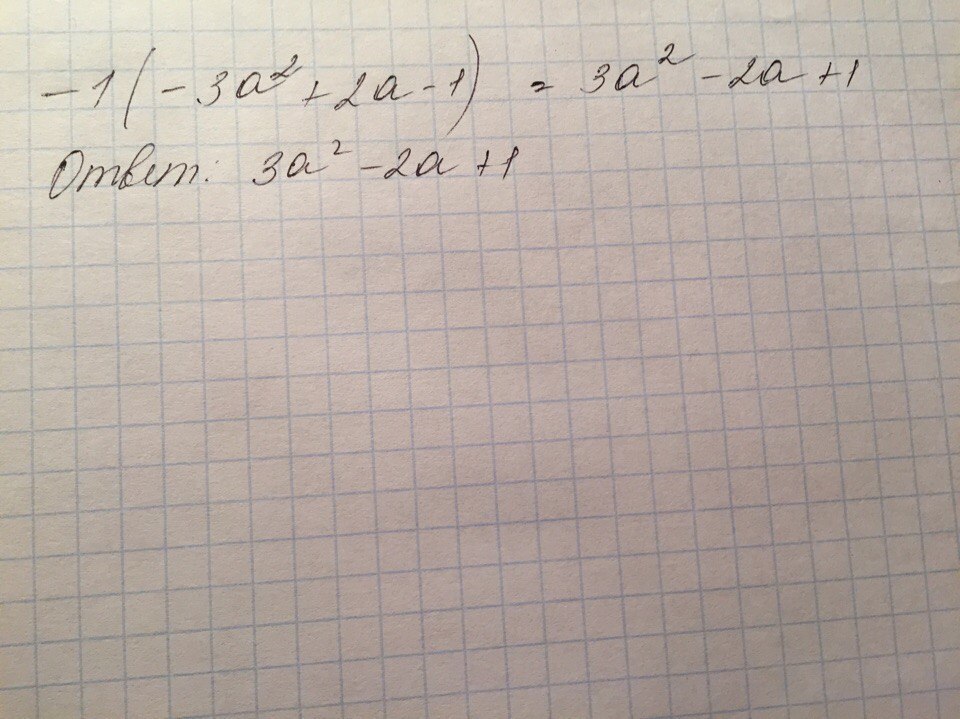 -1(-3a²+2a-1) = 3a²-2a+1
Ответ: 3a²-2a+1